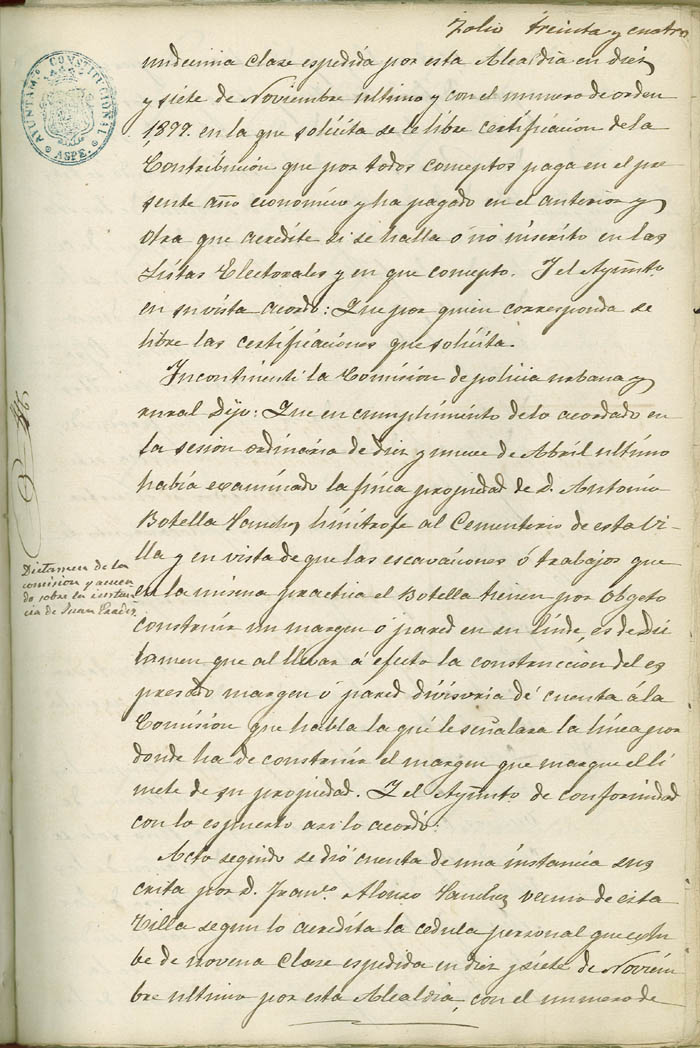 Folio treinta y cuatro
AYUNTAM.º CONSTITUCIONAL
ASPE.
undecima clase espedida por esta Alcaldia en diez
y siete de Noviembre ultimo y con el numero de orden
1,899. en la que solicita se le libre certificacion de la
Contribucion que por todos conceptos paga en el pre
sente año economico y ha pagado en el anterior y
otra que acredite si se halla ó nó inscrito en las
Listas Electorales y en que concepto. Y el Ayunto.
en su vista acordo: Que por quien corresponda se
libre las certificaciones que solicita.
Incontinenti la Comision de policia urbana y
rural Dijo: Que en cumplimiento de lo acordado en
la sesion ordinaria de diez y nueve de Abril ultimo
habia examinado la finca propiedad de D. Antonio
Botella Sanchez limitrofe al Cementerio de esta Vi-
lla y en vista de que las escavaciones ó trabajos que
en la misma practica el Botella tienen por obgeto
construir un margen ó pared en su linde, es de dic
tamen que al llevar á efecto la construccion del es
presado margen ó pared divisoria dé cuenta á la
Comision que habla la que le señalara la linea por
donde ha de construir el margen que marque el li
mete de su propiedad. Y el Ayunto de conformidad
con lo espuesto asi lo acordó.
Dictamen de la
comision y acuer
do sobre la instan
cia de Juan
Acto seguido se dió cuenta de una instancia sus
crita por D. Franco. Alonso Sanchez vecino de esta
Villa segun lo acredita la cedula personal que exhi
be de novena Clase espedida en diez y siete de Noviem
bre ultimo por esta Alcaldia, con el numero de